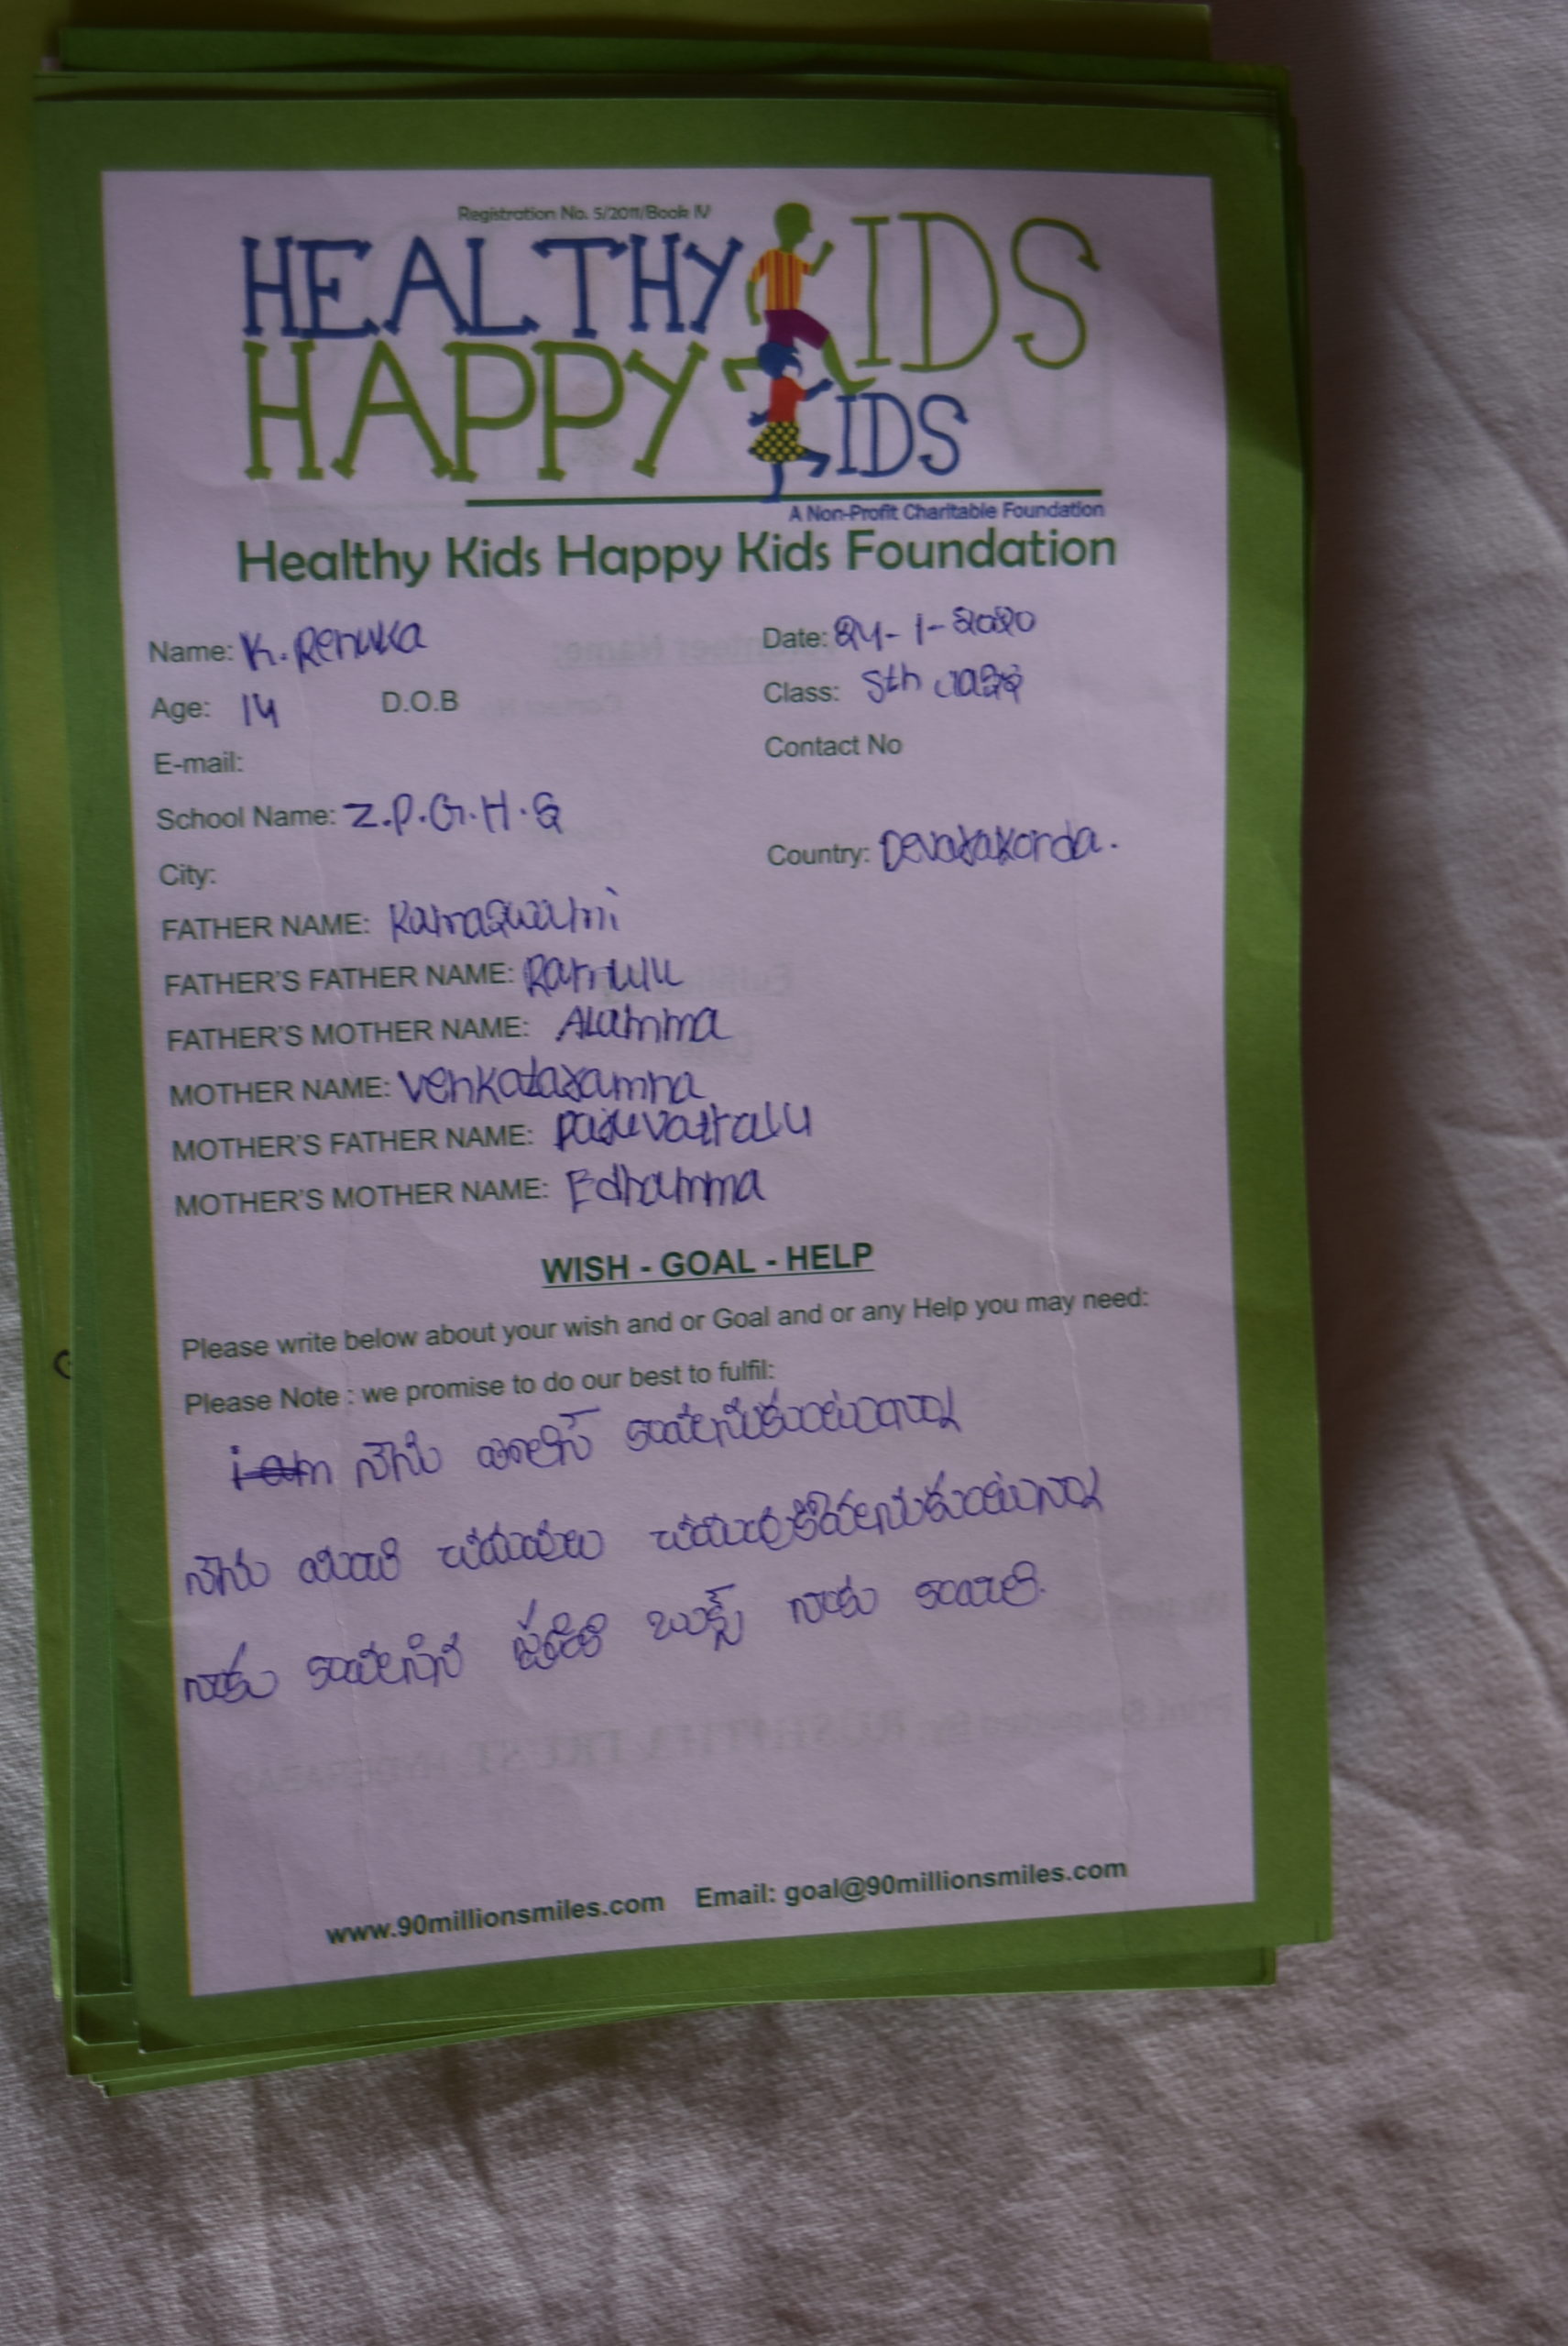 Registration No. 5/2011/Book IV
HEALTHY KIDS
HAPPY KIDS
A Non-Profit Charitable Foundation
Healthy Kids Happy Kids Foundation
Name: K. Renuka Date: 24-1-2020
Age: 14 D.O.B Class:
E-mail: Contact No
School Name: Z.P.G.H.S
City: Country: Devarakonda.
FATHER NAME: Ramaswami
FATHER'S FATHER NAME: Ramulu
FATHER'S MOTHER NAME: Alamma
MOTHER NAME: Venkataramna
MOTHER'S FATHER NAME:
MOTHER'S MOTHER NAME: Edhamma
WISH - GOAL - HELP
Please write below about your wish and or Goal and or any Help you may need:
Please Note : we promise to do our best to fulfil:
i am నేను పోలీస్ కావాలనుకుంటున్నా
నేను మంచి చదువులు చదువుకోవాలనుకుంటున్నా
నాకు కావలసిన ప్రతిది బుక్స్ నాకు కావాలి.
www.90millionsmiles.com Email: goal@90millionsmiles.com